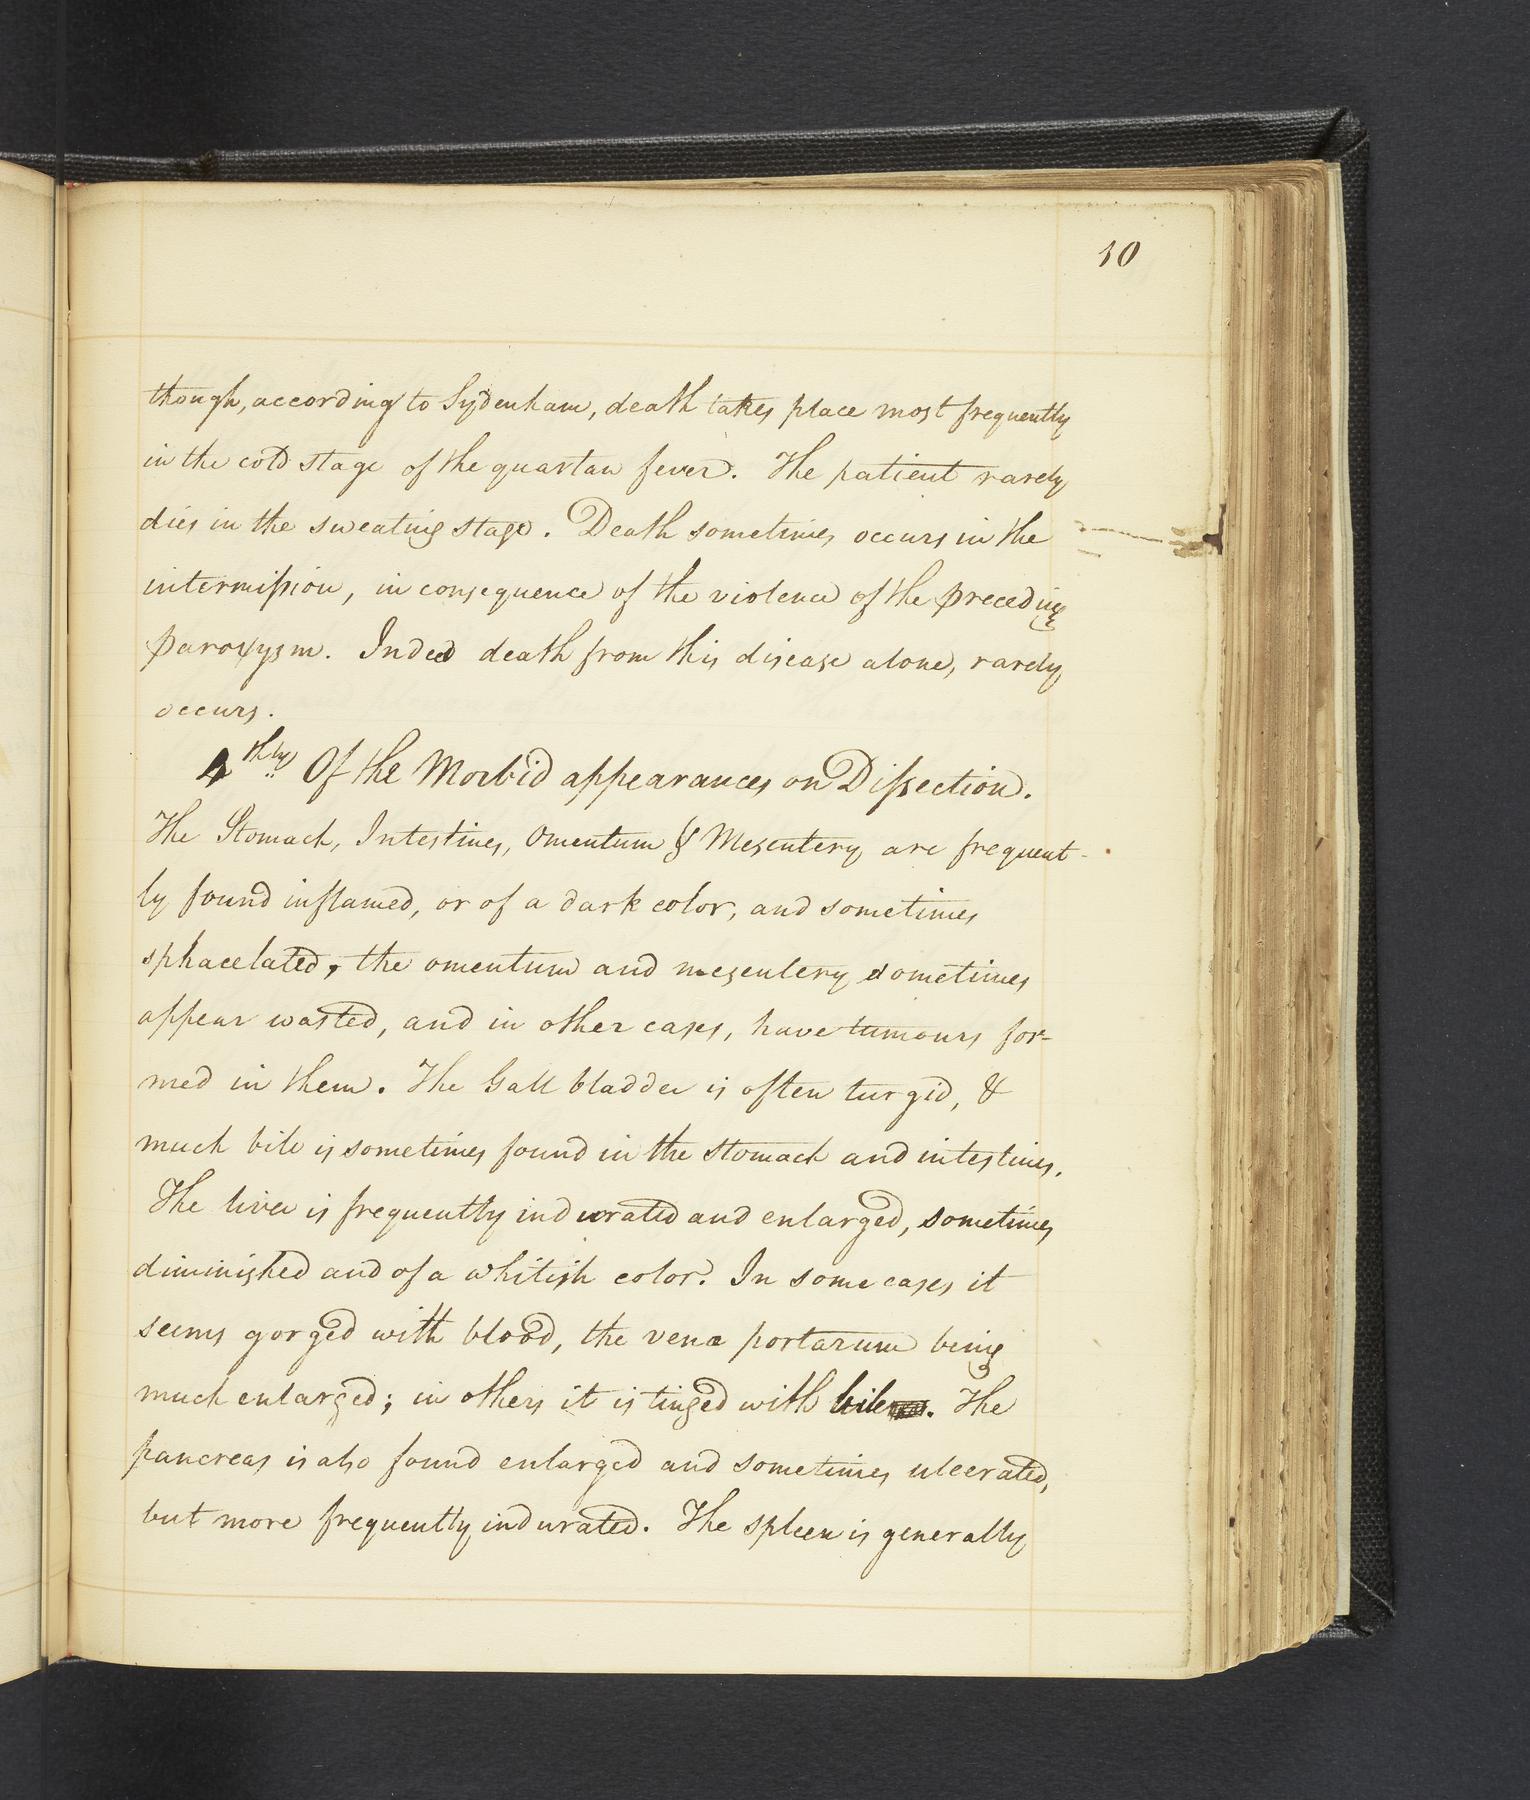 10
though, according to Sydenham, death takes place most frequently
in the cold stage of the quartan fever. The patient rarely
dies in the sweating stage. Death sometimes occurs in the
intermission, in consequence of the violence of the preceding
paroxysm. Indeed death from this disease alone, rarely
occurs.
4thly Of the Morbid appearances on Dissection.
The Stomach, Intestines, Omentum & Mesentery are frequent-
ly found inflamed, or of a dark color, and sometimes
sphacelated, the omentum and mesentery sometimes
appear wasted, and in other cases, have tumours for-
med in them. The Gall bladder is often turgid, &
much bile is sometimes found in the stomach and intestines.
The liver is frequently indurated and enlarged, sometimes
diminished and of a whitish color. In some cases it
seems gorged with blood, the vena portarum being
much enlarged; in others it is tinged with bile. The
pancreas is also found enlarged and sometimes ulcerated,
but more frequently indurated. The spleen is generally